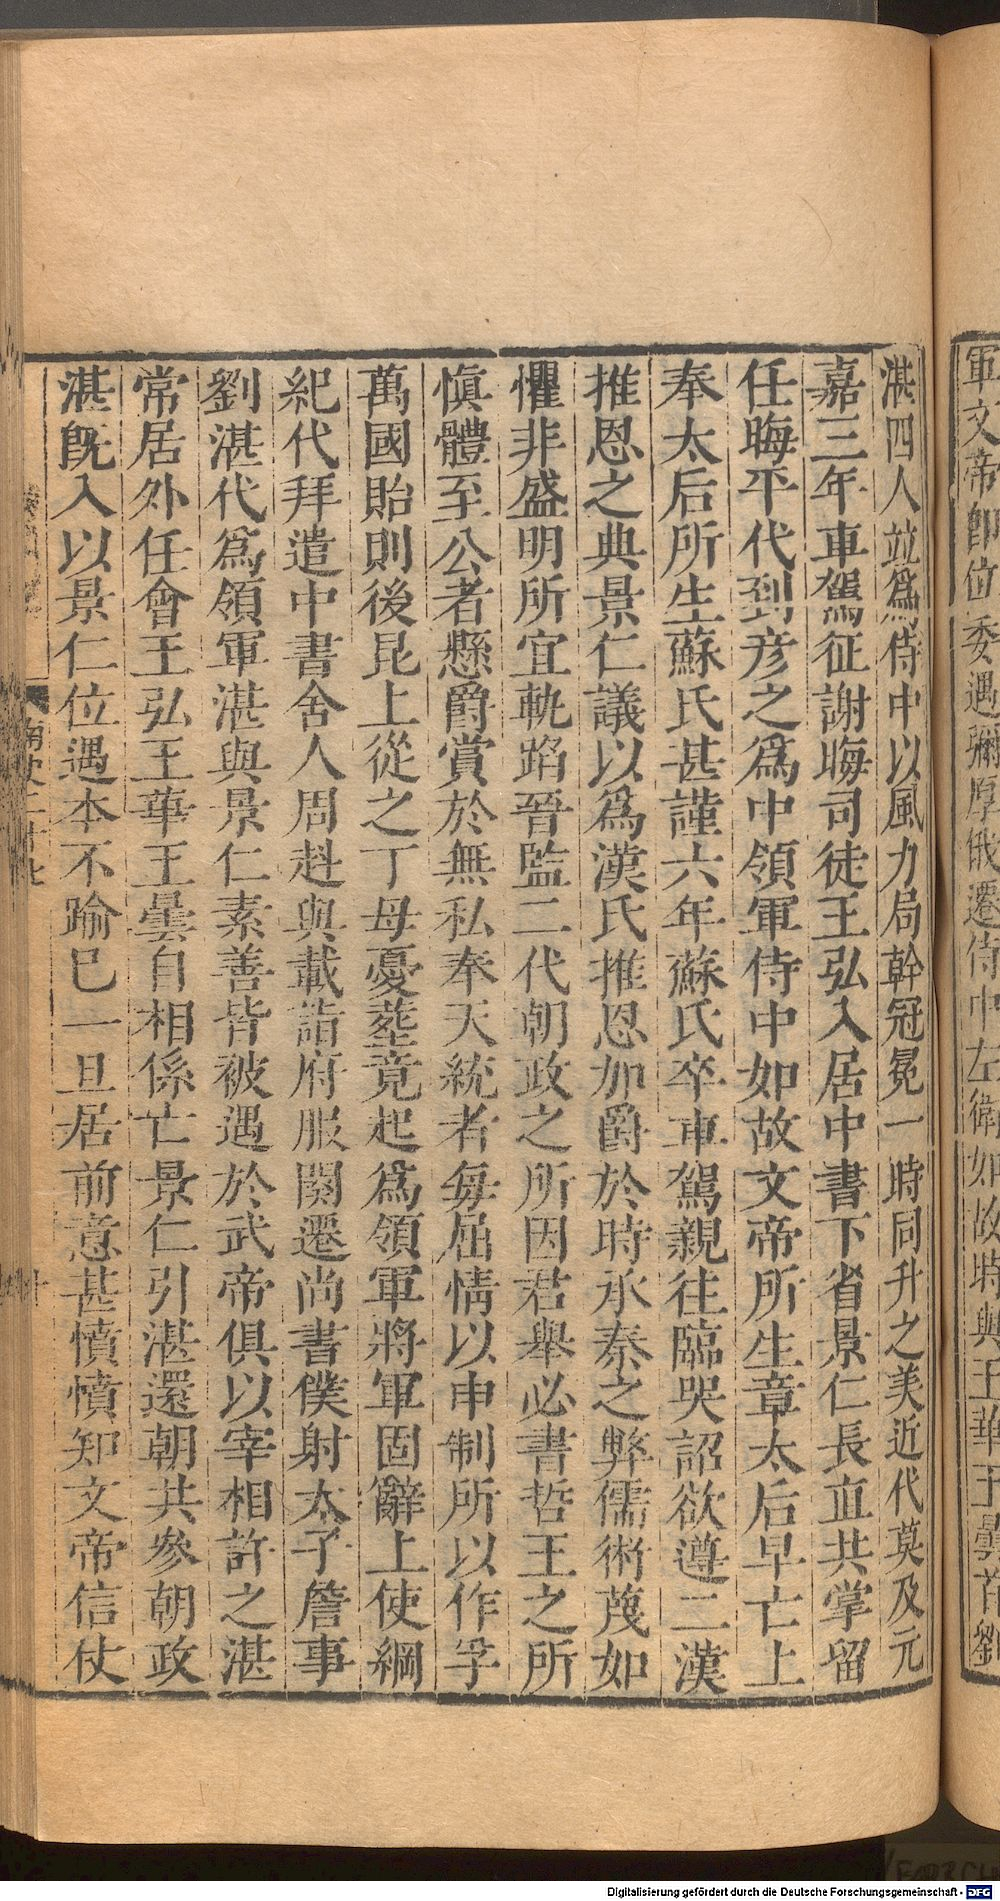 軍文帝卽位委遇彌厚俄遷侍中左衛如故時與王華王曇首劉
湛四人並爲侍中以風力局幹冠冕一時同升之美近代莫及元
嘉三年車駕征謝晦司徒王弘入居中書下省景仁長直共掌留
任晦平代到彥之爲中領軍侍中如故文帝所生章太后早亡上
奉太后所生蘇氏甚謹六年蘇氏卒車駕親往臨哭詔欲遵二漢
推恩之典景仁議以爲漢氏推恩加爵於時承秦之弊儒術蔑如
懼非盛明所宜軌蹈晉監二代朝政之所因君舉必書哲王之所
愼體至公者懸爵賞於無私奉天統者每屈情以申制所以作孚
萬國貽則後昆上從之丁母憂葬竟起爲領軍將軍固辭上使綱
紀代拜遣中書舍人周赳與載詣府服闋遷尚書僕射太子詹事
劉湛代爲領軍湛與景仁素善皆被遇於武帝俱以宰相許之湛
常居外任會王弘王華王曇自相係亡景仁引湛還朝共參朝政
湛旣入以景仁位遇本不踰已一旦居前意甚憤憤知文帝信仗
Digitalisierung gefördert durch die Deutsche Forschungsgemeinschaft - DFG